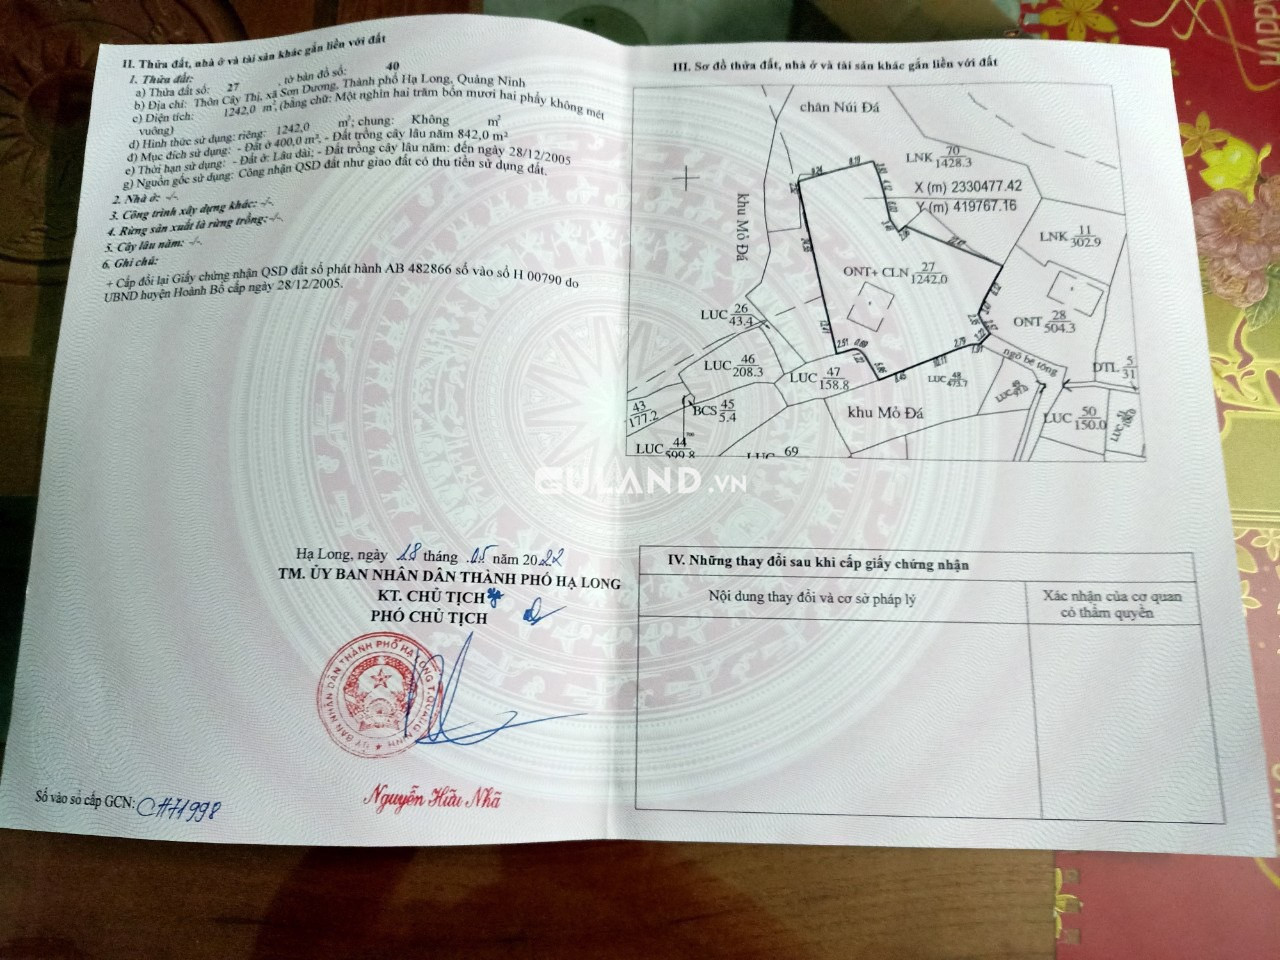 II. Thửa đất, nhà ở và tài sản khác gắn liền với đất
1. Thửa đất:
a) Thửa đất số: 27 , tờ bản đồ số: 40
b) Địa chỉ: Thôn Cây Thị, xã Sơn Dương, Thành phố Hạ Long, Quảng Ninh
c) Diện tích: 1242,0 m², (bằng chữ: Một nghìn hai trăm bốn mươi hai phẩy không mét
vuông)
d) Hình thức sử dụng: riêng: 1242,0 m²; chung: Không m²
đ) Mục đích sử dụng: - Đất ở 400,0 m². - Đất trồng cây lâu năm 842,0 m²
e) Thời hạn sử dụng: - Đất ở: Lâu dài; - Đất trồng cây lâu năm: đến ngày 28/12/2005
g) Nguồn gốc sử dụng: Công nhận QSD đất như giao đất có thu tiền sử dụng đất.
2. Nhà ở: -/-
3. Công trình xây dựng khác: -/-
4. Rừng sản xuất là rừng trồng: -/-
5. Cây lâu năm: -/-
6. Ghi chú:
+ Cấp đổi lại Giấy chứng nhận QSD đất số phát hành AB 482866 số vào sổ H 00790 do
UBND huyện Hoành Bồ cấp ngày 28/12/2005.
Hạ Long, ngày 18 tháng 05 năm 2022
TM. ỦY BAN NHÂN DÂN THÀNH PHỐ HẠ LONG
KT. CHỦ TỊCH
PHÓ CHỦ TỊCH
ỦY BAN NHÂN DÂN THÀNH PHỐ HẠ LONG T. QUẢNG NINH
Nguyễn Hữu Nhã
Số vào sổ cấp GCN: CH71998
III. Sơ đồ thửa đất, nhà ở và tài sản khác gắn liền với đất
chân Núi Đá
LNK 70
1428.3
X (m) 2330477.42
Y (m) 419767.16
khu Mỏ Đá
LNK 11
302.9
ONT+ CLN 27
1242.0
LUC 26
43.4
ONT 28
504.3
LUC 46
208.3
LUC 47
158.8
LUC 48
473.7
ngõ bê tông
DTL 5
31
43
177.2
BCS 45
5.4
khu Mỏ Đá
LUC 50
150.0
LUC 44
599.8
LUC 69
GULAND.VN
IV. Những thay đổi sau khi cấp giấy chứng nhận
Nội dung thay đổi và cơ sở pháp lý
Xác nhận của cơ quan
có thẩm quyền
HAPPY